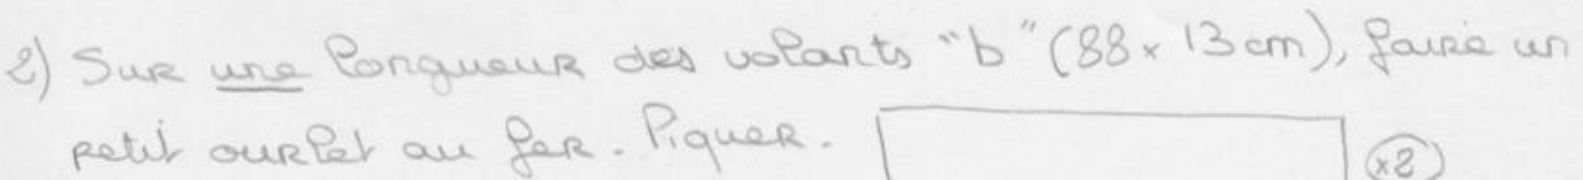 2) Sur une longueur des volants "b" (88 x 13 cm), faire un
petit ourlet au fer. Piquer.
x2